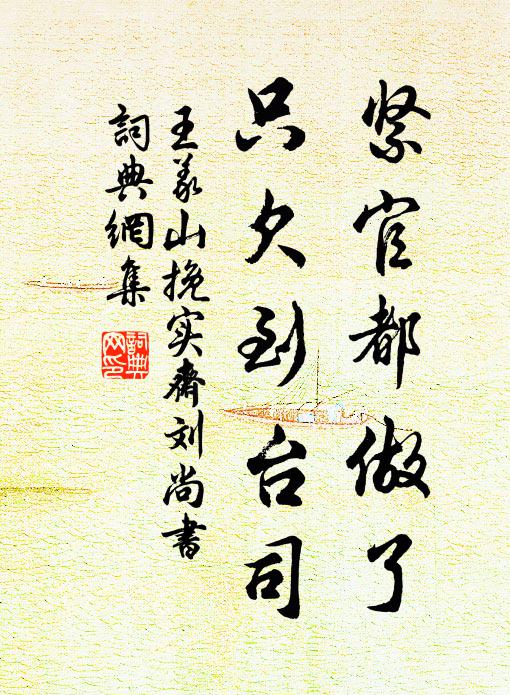 紧官都做了
只欠到台司
王義山挽实斋刘尚書
詞典網集
詞典网印